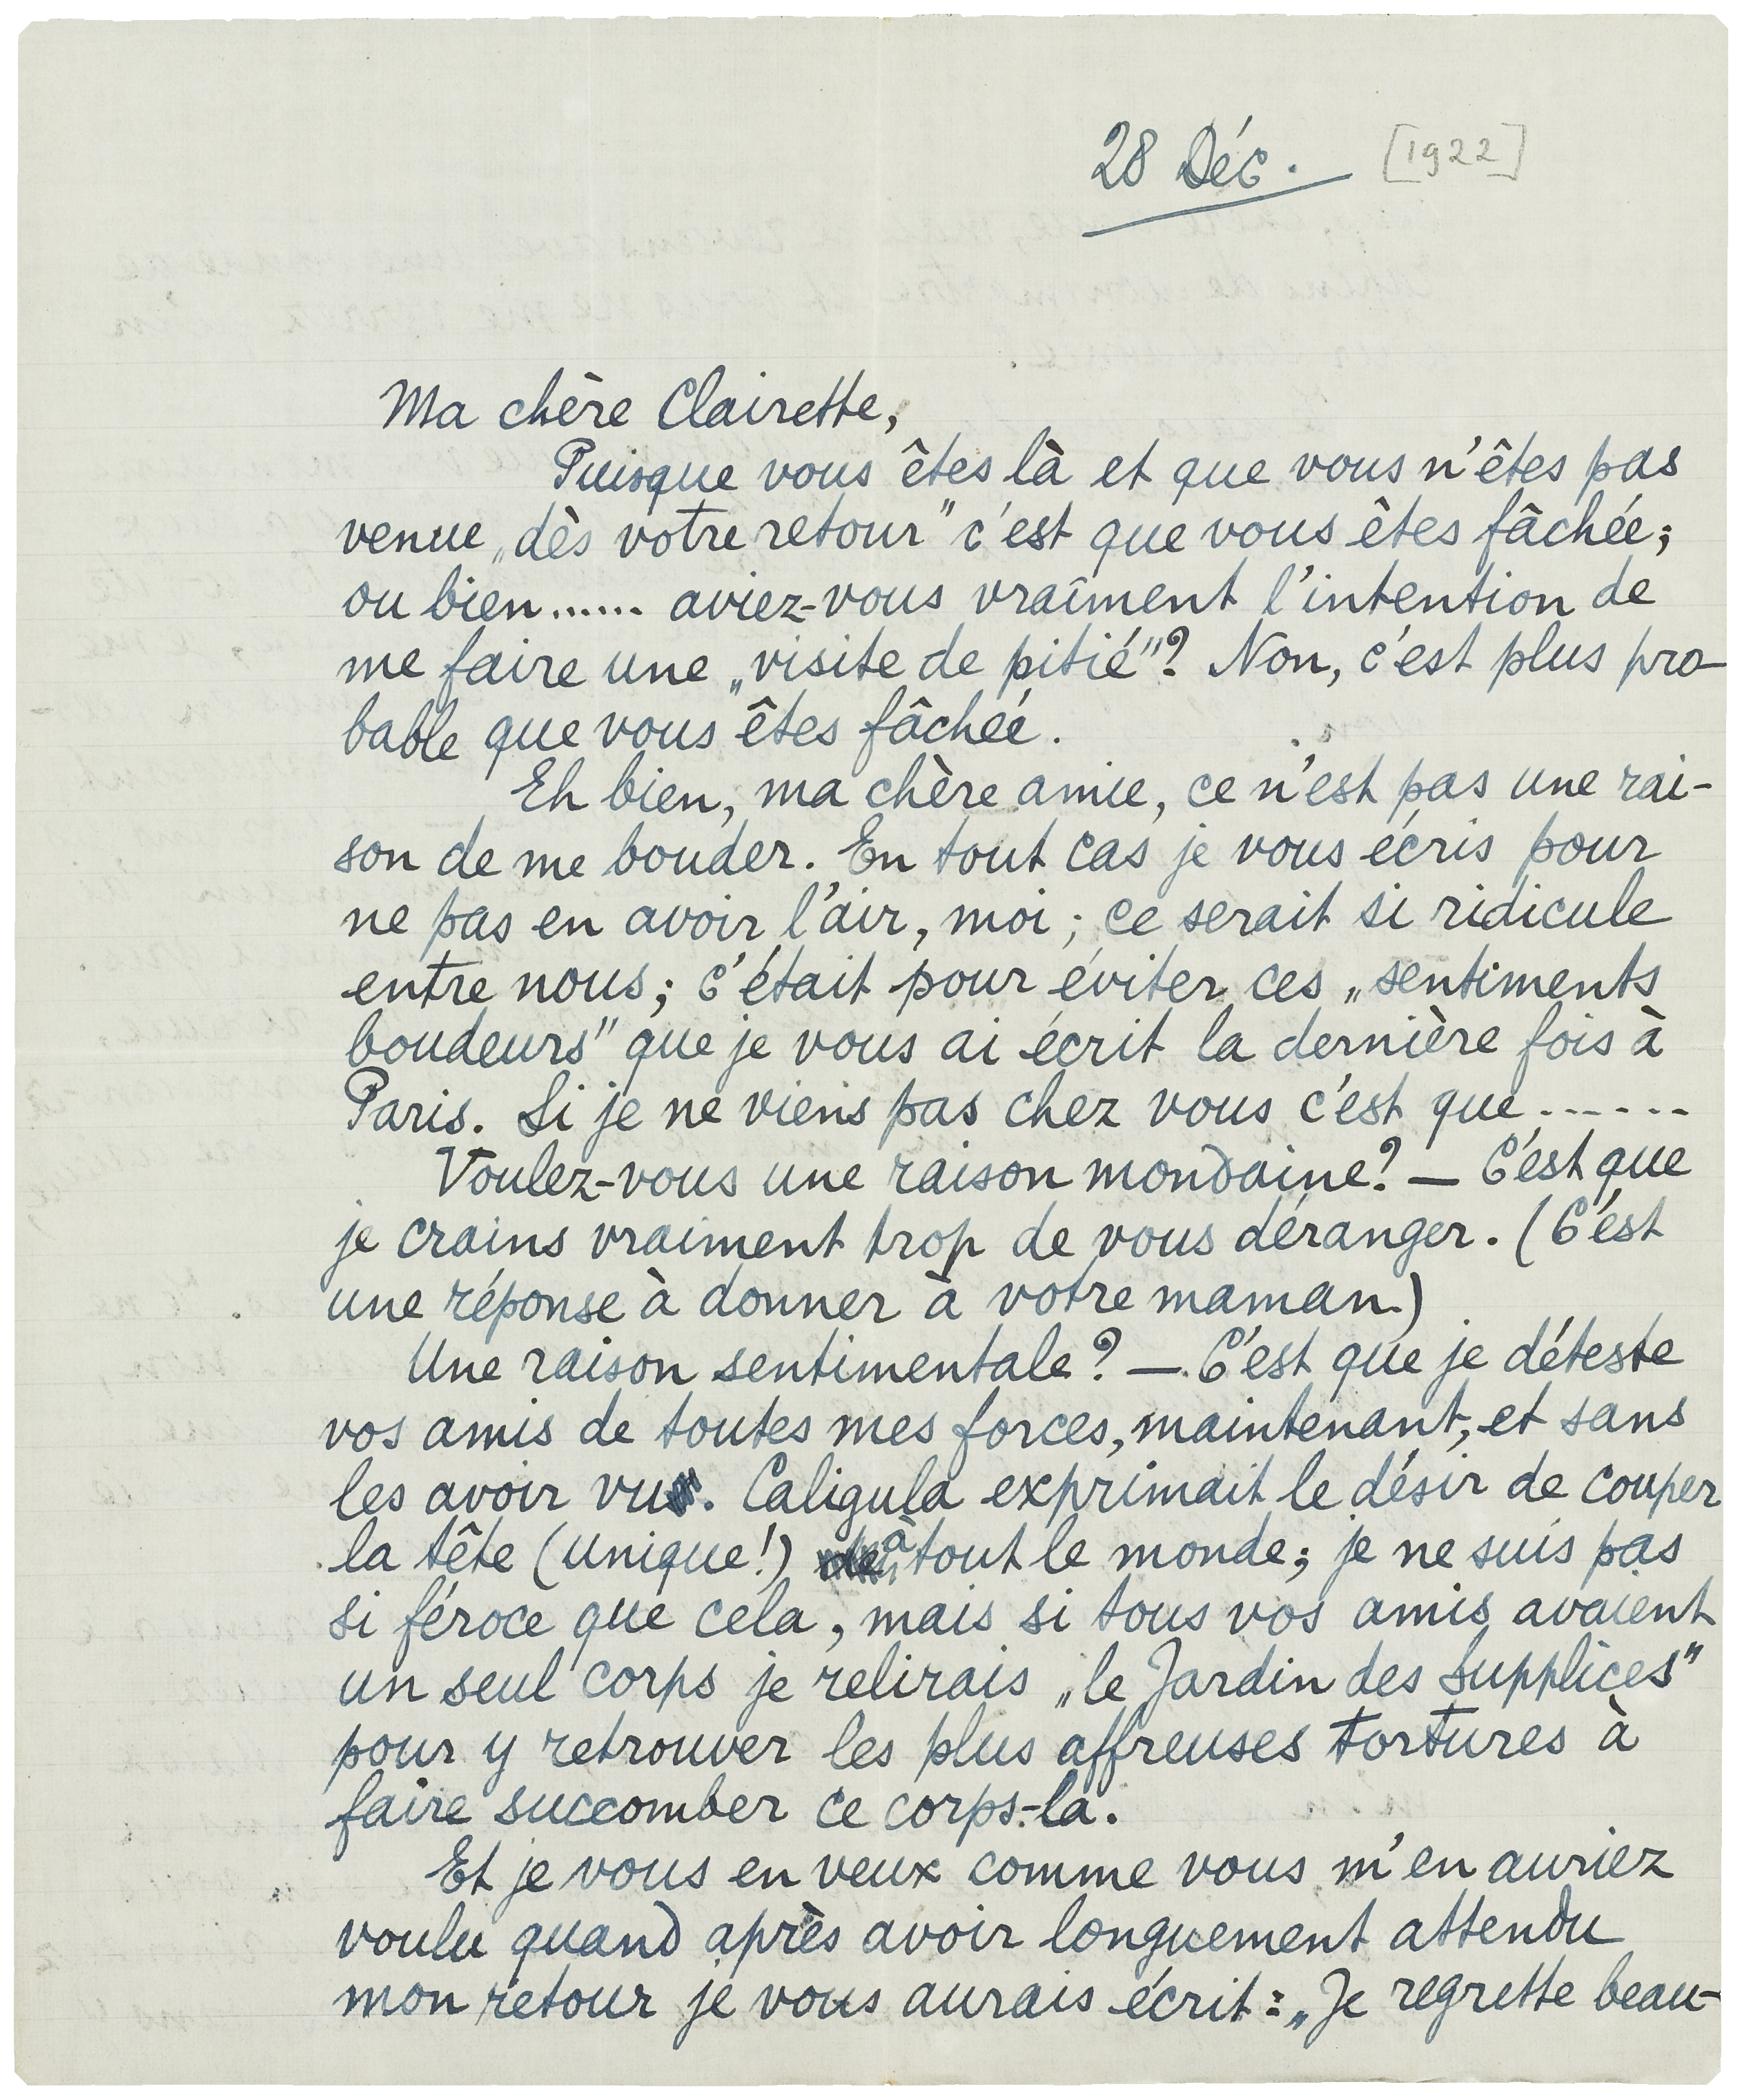 28 Déc. [1922]
Ma chère Clairette,
Puisque vous êtes là et que vous n'êtes pas
venue „dès votre retour" c'est que vous êtes fâchée;
ou bien...... aviez-vous vraîment l'intention de
me faire une „visite de pitié"? Non, c'est plus pro-
bable que vous êtes fâchée.
Eh bien, ma chère amie, ce n'est pas une rai-
son de me bouder. En tout cas je vous écris pour
ne pas en avoir l'air, moi; ce serait si ridicule
entre nous; c'était pour éviter ces „sentiments
boudeurs" que je vous ai écrit la dernière fois à
Paris. Si je ne viens pas chez vous c'est que......
Voulez-vous une raison mondaine? — C'est que
je crains vraiment trop de vous déranger. (C'est
une réponse à donner à votre maman.)
Une raison sentimentale? — C'est que je déteste
vos amis de toutes mes forces, maintenant, et sans
les avoir vus. Caligula exprimait le désir de couper
la tête (unique!) à tout le monde; je ne suis pas
si féroce que cela, mais si tous vos amis avaient
un seul corps je relirais „le Jardin des Supplices"
pour y retrouver les plus affreuses tortures à
faire succomber ce corps-là.
Et je vous en veux comme vous m'en auriez
voulu quand après avoir longuement attendu
mon retour je vous aurais écrit: „Je regrette beau-